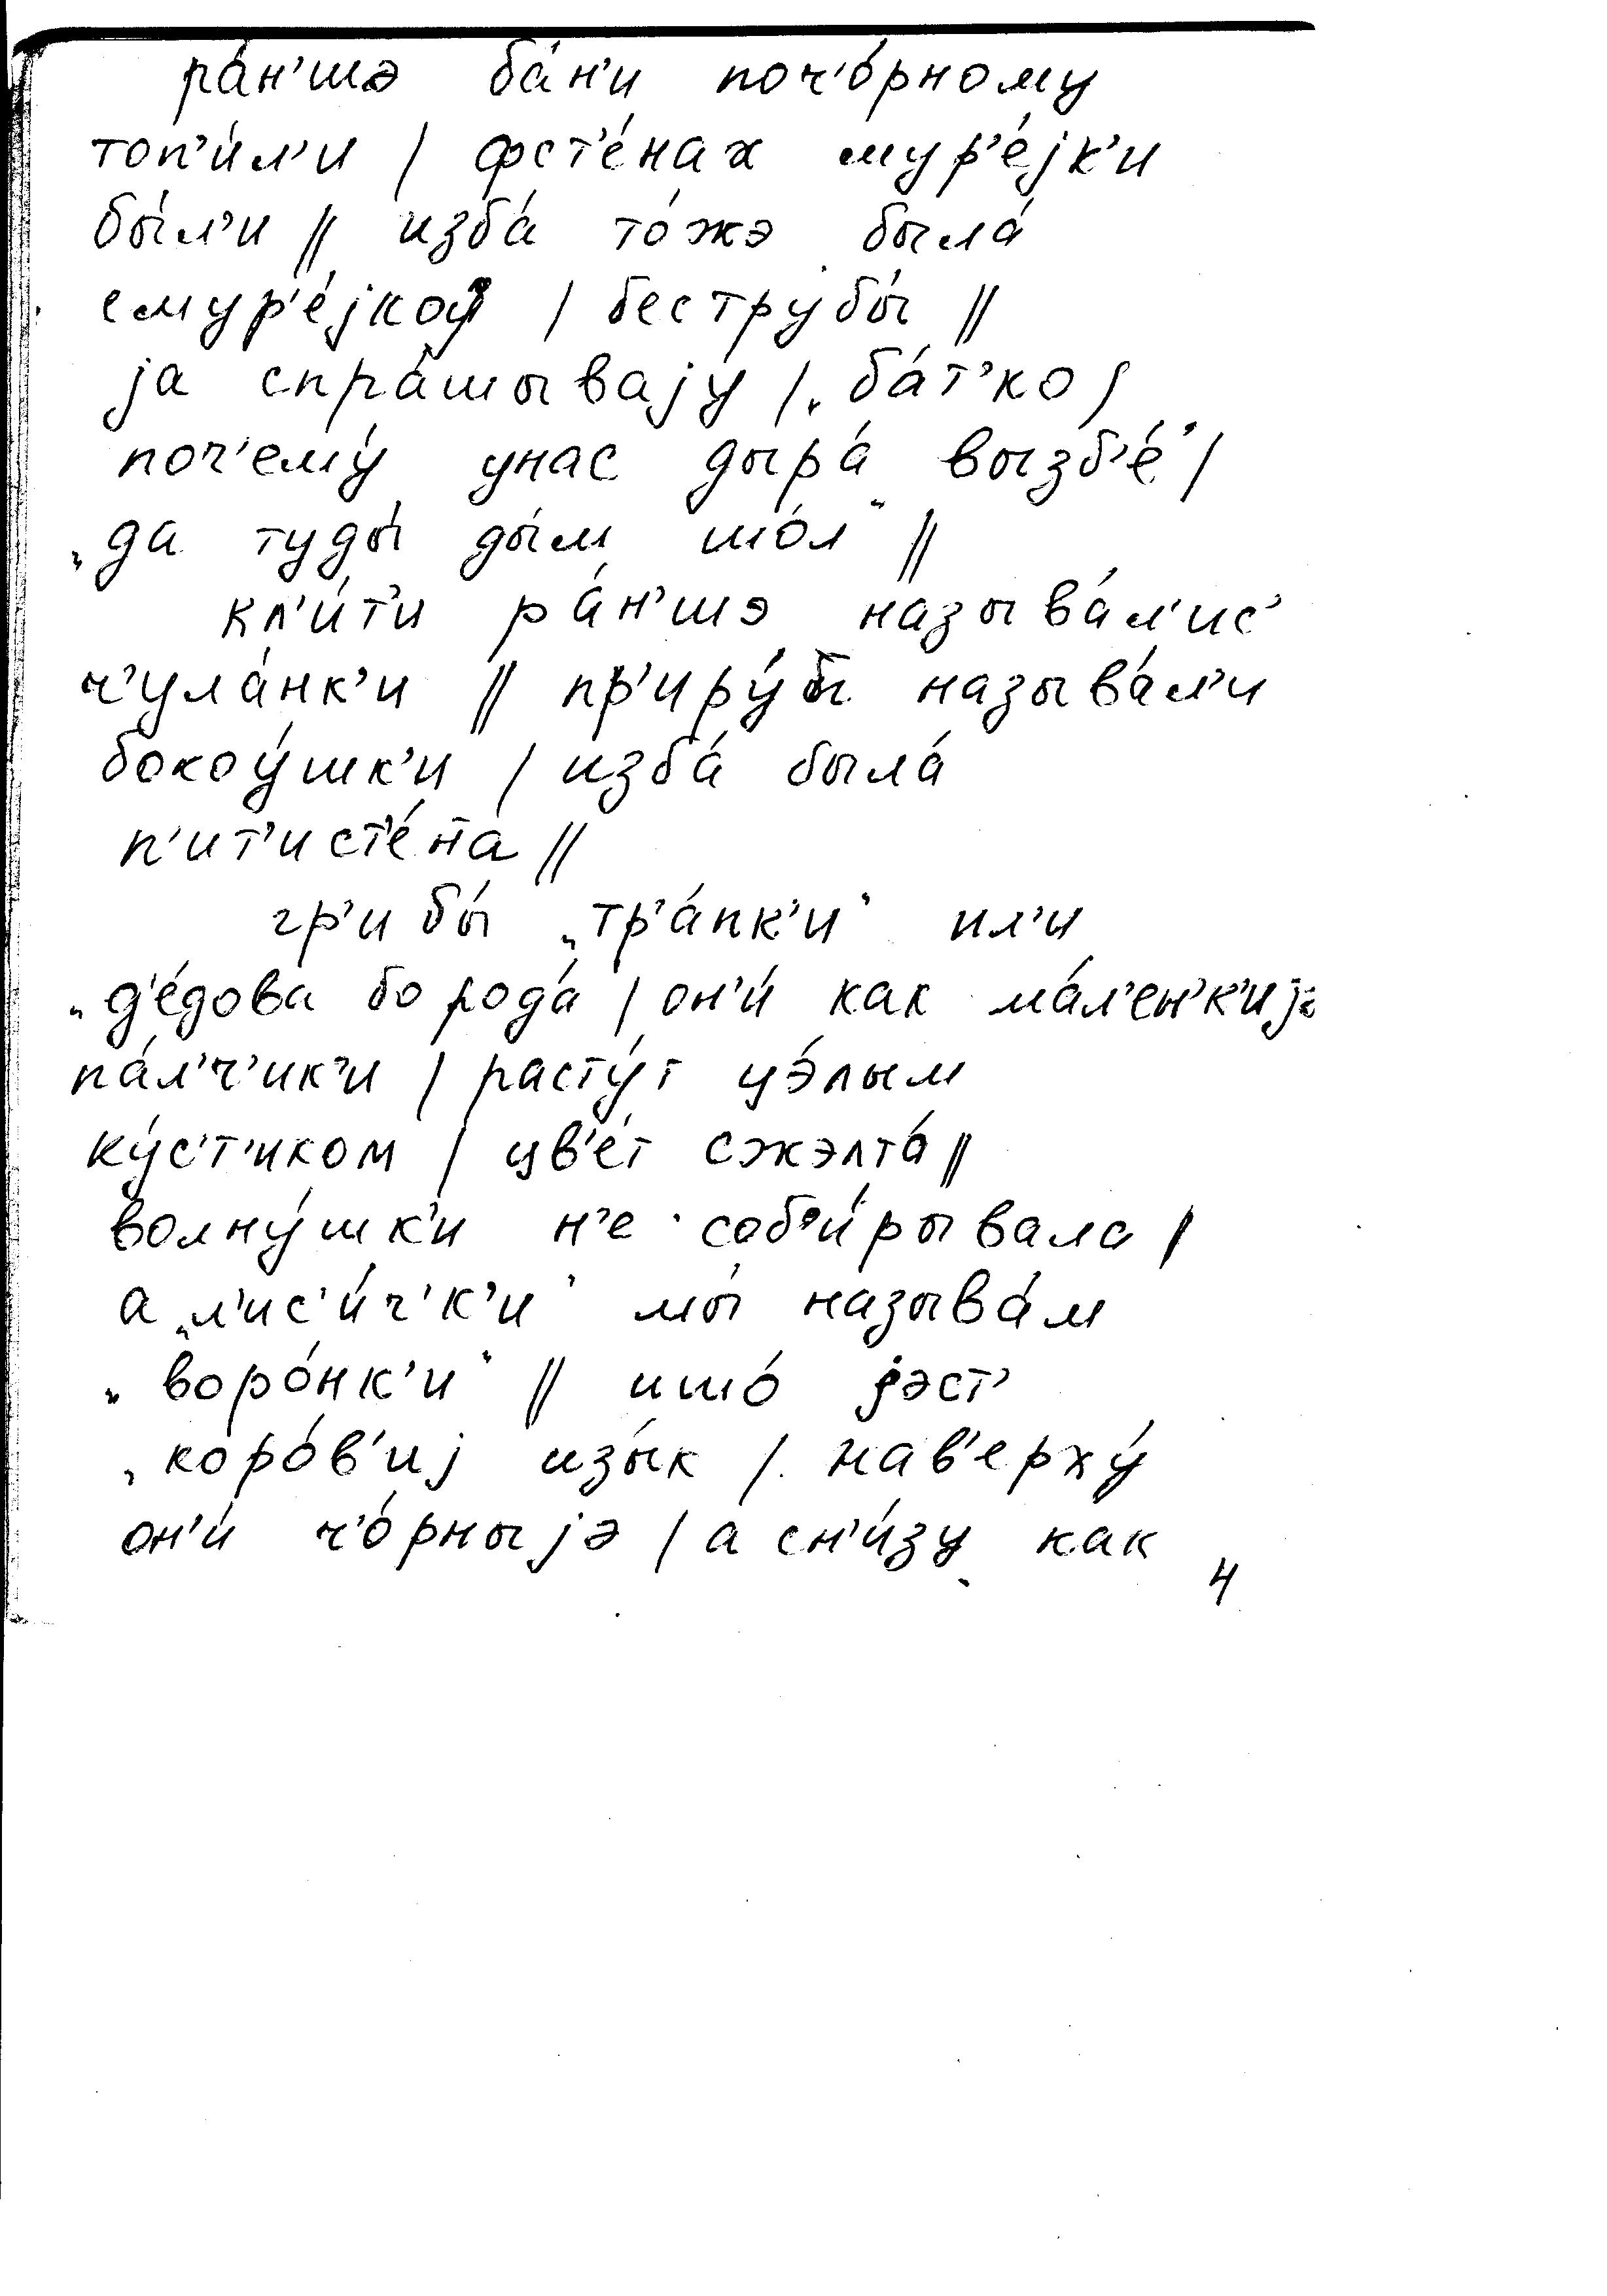 ра́н'шэ ба́н'и поч'о́рному
топ'и́л'и / фст'е́нах мур'е́jк'и
бы́л'и // изба́ то́жэ была́
смур'е́jкоj / беструбы́ //
jа спра́шываjу / „ба́т'ко /
поч'ему́ унас дыра́ вызб'е́" /
„да туды́ ды́м шо́л" //
кл'и́т'и ра́н'шэ называ́л'ис'
ч'ула́нк'и // пр'иру́бы называ́л'и
бокоу́шк'и / изба́ была́
п'ит'ист'е́на //
гр'ибы́ „тр'а́пк'и" ил'и
„д'е́дова борода́ / он'и́ как ма́л'ен'к'иjэ
па́л'ч'ик'и / расту́т цэ́лым
ку́с'т'иком / цв'е́т сжэлта́ //
волну́шк'и н'е соб'и́рывала /
а „л'ис'и́ч'к'и" мы́ называ́м
„воро́нк'и" // ишо́ jэст'
„коро́в'иj изы́к / нав'ерху́
он'и́ ч'о́рныjэ / а сн'и́зу как
4